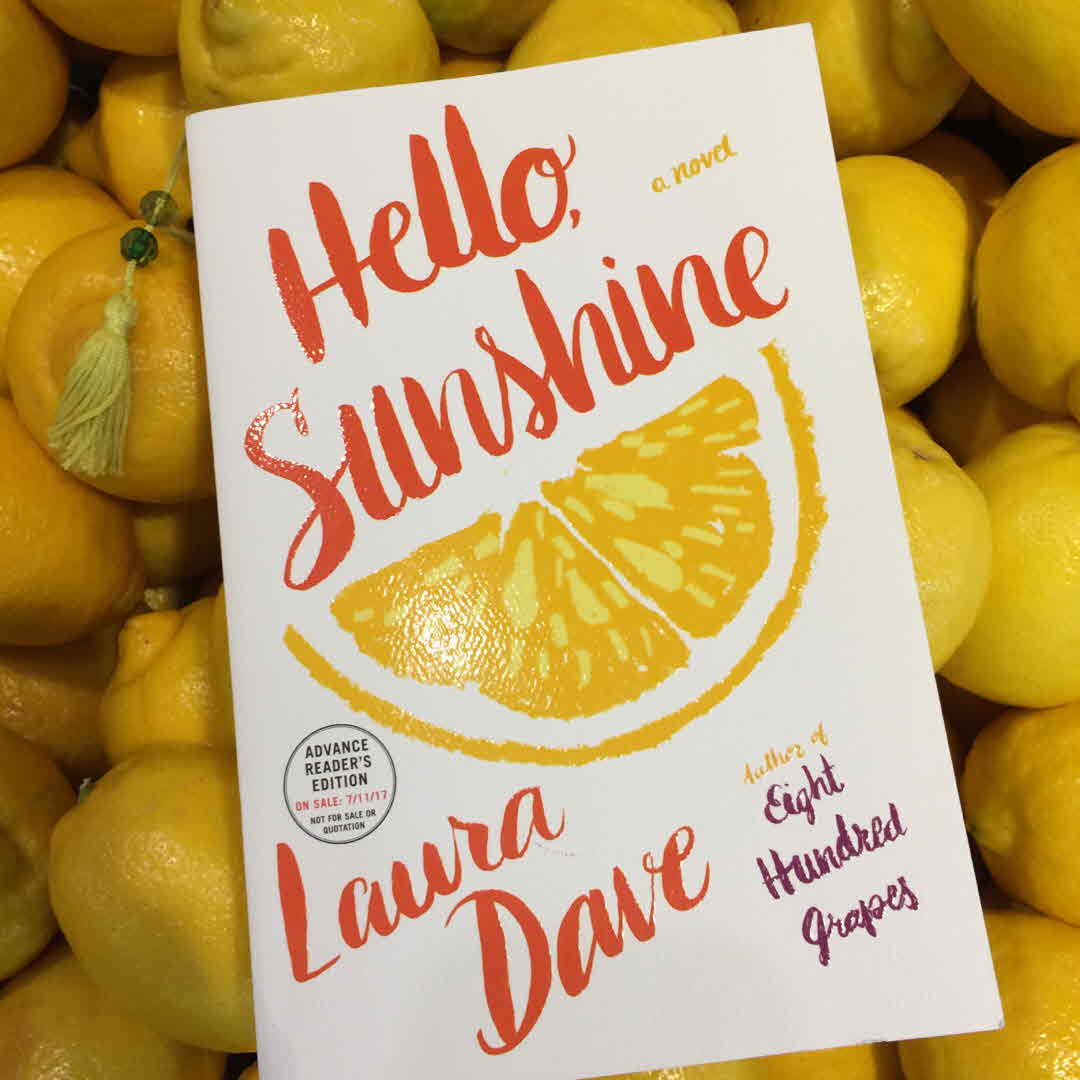 Hello,
a novel
Sunshine
ADVANCE
READER'S
EDITION
ON SALE: 7/11/17
NOT FOR SALE OR
QUOTATION
Laura
Dave
Author of
Eight
Hundred
Grapes